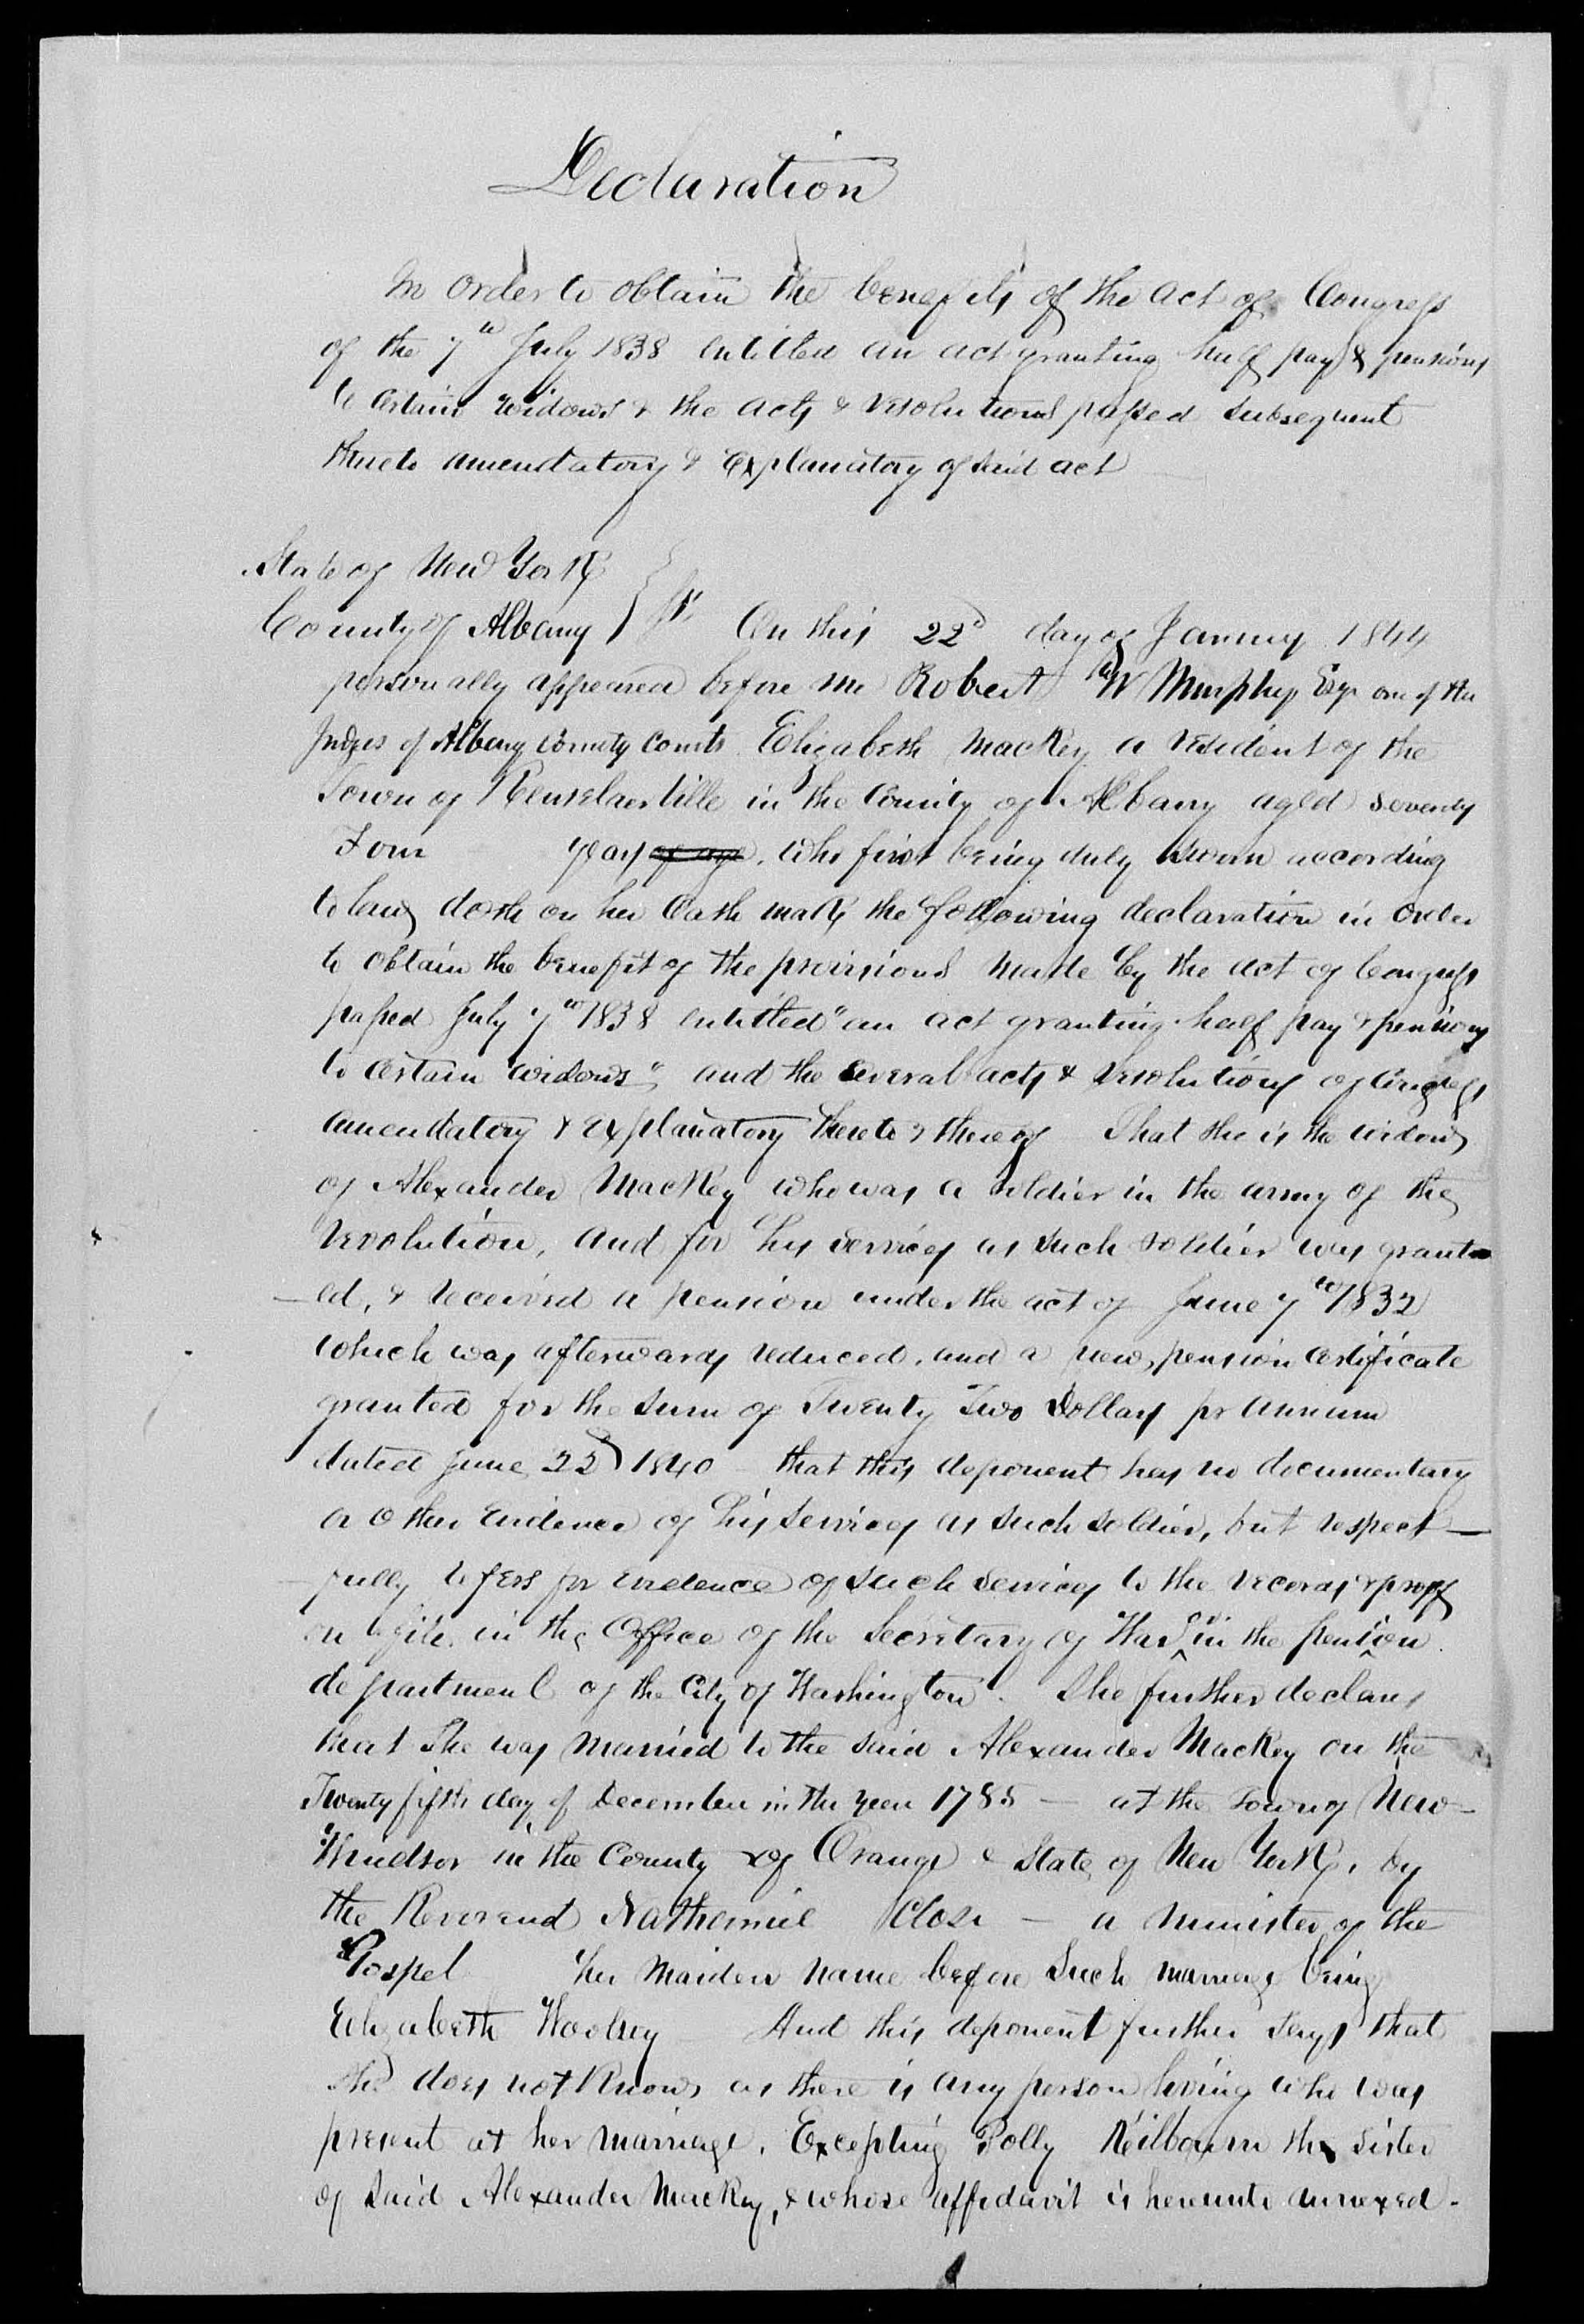 Declaration
In order to obtain the benefits of the act of Congress
of the 7th July 1838 entitled an act granting half pay & pensions
to certain widows & the acts & resolutions passed subsequent
thereto amendatory & explanatory of said act
State of New York
County of Albany } ss. On this 22d day of January 1844
personally appeared before me Robert W Murphy, Esqr one of the
Judges of Albany County Courts Elizabeth Mackey a resident of the
Town of Renselaerville in the County of Albany aged seventy
Four years of age, who first being duly sworn according
to law, doth on her Oath make the following declaration in order
to obtain the benefit of the provisions made by the act of Congress
passed July 7th 1838 entitled "an act granting half pay & pensions
to certain widows", and the several acts & resolutions of Congress
amendatory & explanatory thereto & thereof That she is the widow
of Alexander Mackey who was a soldier in the army of the
revolution, and for his services as such soldier was grant
ed, & received a pension under the act of June 7th 1832
which was afterwards reduced, and a new pension certificate
granted for the sum of Twenty Two Dollars pr annum
dated June 22d 1840 – that this deponent has no documentary
or other evidence of his services as such soldier, but respect–
–fully refers for evidence of such services to the records & proof
on file in the Office of the Secretary of War, or in the pension
department of the City of Washington. She further declares
that She was married to the said Alexander Mackey on the
Twenty fifth day of December in the year 1785 – at the Town of New–
Windsor in the County of Orange & State of New York, by
the Reverend Nathaniel Close – a minister of the
Gospel her maiden name before such marriage being
Elizabeth Woolsey And this deponent further says that
she does not know as there is any person living who was
present at her marriage, Excepting Polly Keilbourn the sister
of said Alexander Mackey, & whose affidavit is hereunto annexed.